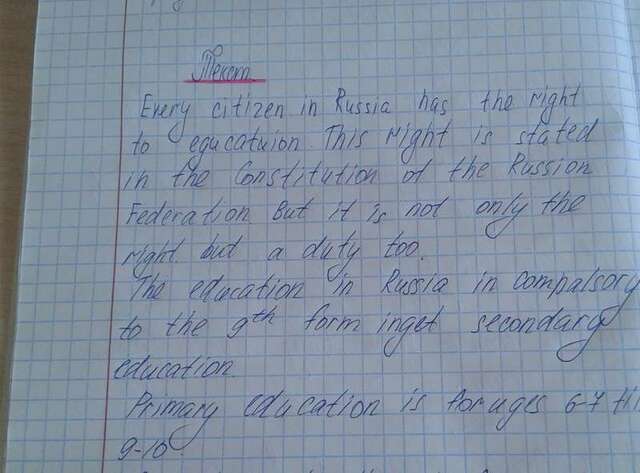 Текст
Every citizen in Russia has the right
to egucatuion. This right is stated
in the Constitution of the Russion
Federation But it is not only the
right but a duty too.
The education in Russia in compalsory
to the 9th form inget secondary
education
Primary education is for uges 6-7 till
9-10